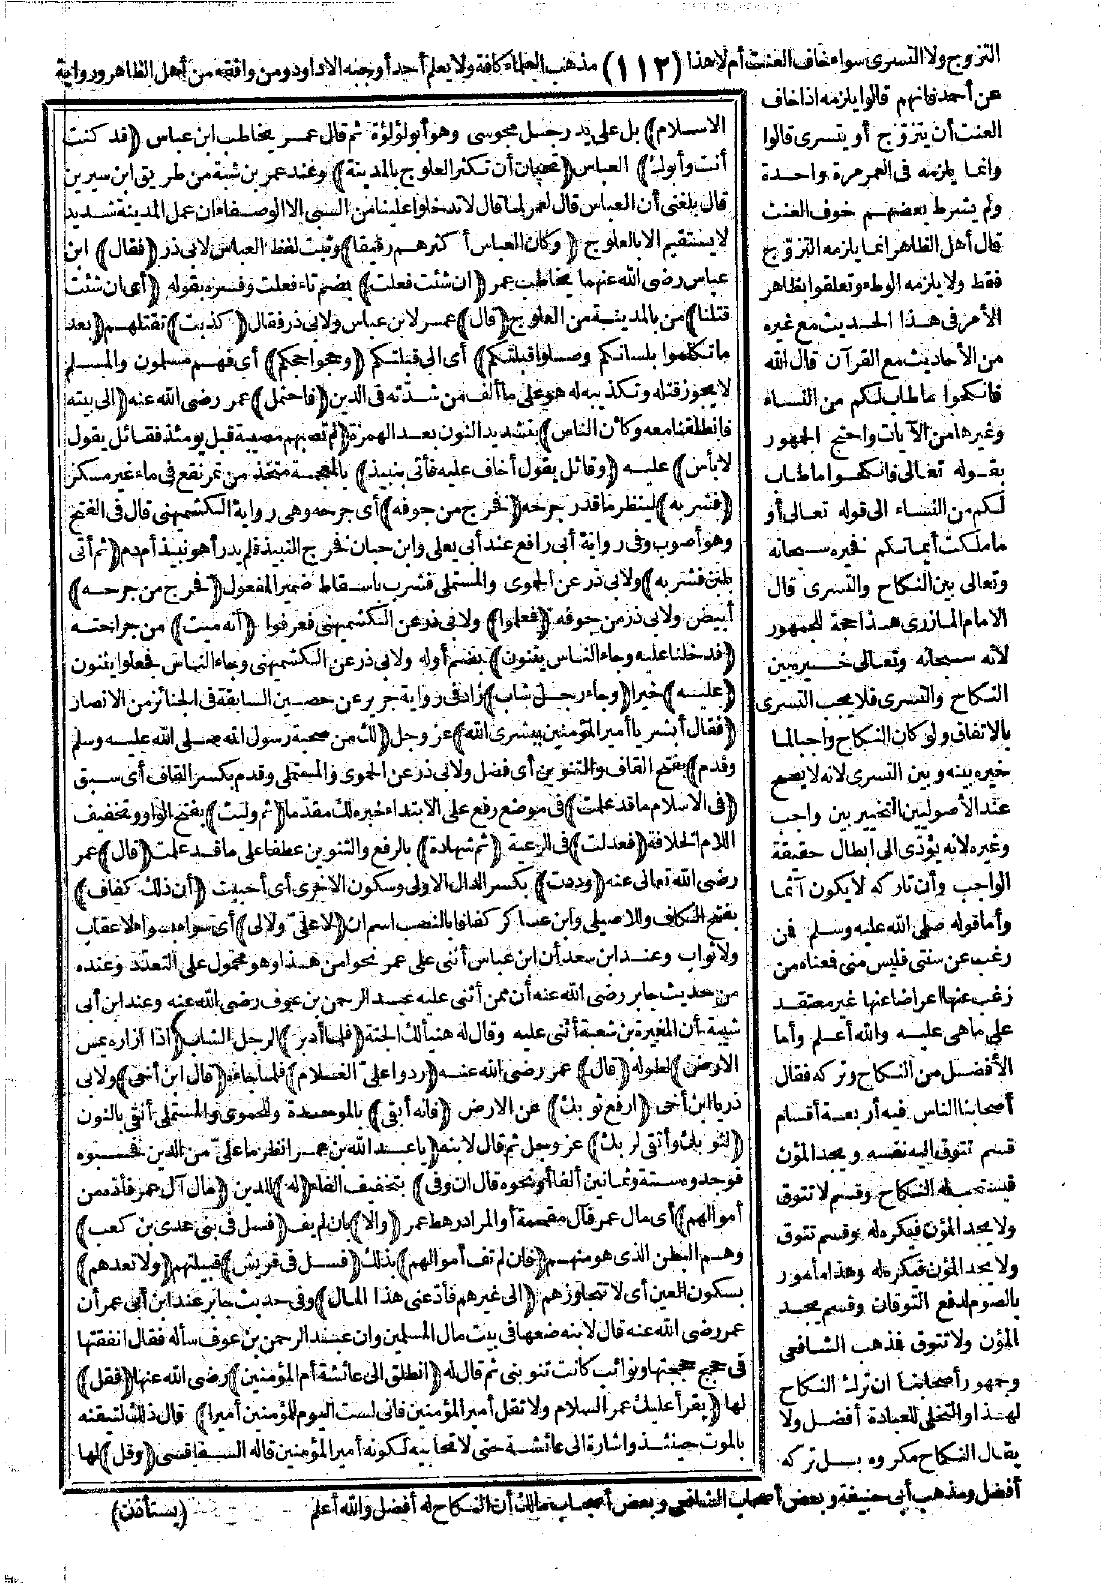 التزوج ولا التسرى سواء خاف العنت أم لا هذا (١١٢) مذهب العلماء كافة ولا يعلم أحد أوجبه الا داود ومن وافقه من أهل الظاهر ورواية
عن أحمد فانهم قالوا يلزمه اذا خاف
العنت أن يتزوج أو يتسرى قالوا
وانما يلزمه فى العمر مرة واحدة
ولم يشرط بعضهم خوف العنت
قال أهل الظاهر انما يلزمه التزوج
فقط ولا يلزمه الوطء وتعلقوا بظاهر
الأمر فى هذا الحديث مع غيره
من الأحاديث مع القرآن قال الله
فانكحوا ما طاب لكم من النساء
وغيرها من الآيات واحتج الجمهور
بقوله تعالى فانكحوا ما طاب
لكم من النساء الى قوله تعالى أو
ما ملكت أيمانكم فخيره سبحانه
وتعالى بين النكاح والتسرى قال
الامام المازرى هذا حجة للجمهور
لأنه سبحانه وتعالى خير بين
النكاح والتسرى فلا يجب التسرى
بالاتفاق ولو كان النكاح واجبا لما
خيره بينه وبين التسرى لأنه لا يصح
عند الأصوليين التخيير بين واجب
وغيره لأنه يؤدى الى ابطال حقيقة
الواجب وأن تاركه لا يكون آثما
وأما قوله صلى الله عليه وسلم فمن
رغب عن سنتى فليس منى فمعناه من
رغب عنها اعراضا عنها غير معتقد
على ما هى عليه والله أعلم وأما
الأفضل من النكاح وتركه فقال
أصحابنا الناس فيه أربعة أقسام
قسم تتوق اليه نفسه ويجد المؤن
فيستحب له النكاح وقسم لا تتوق
ولا يجد المؤن فيكره له وقسم تتوق
ولا يجد المؤن فيكره له وهذا مأمور
بالصوم لدفع التوقان وقسم يجد
المؤن ولا تتوق فمذهب الشافعى
وجمهور أصحابنا ان ترك النكاح
لهذا والتخلى للعبادة أفضل ولا
يقال النكاح مكروه بل تركه
أفضل ومذهب أبى حنيفة وبعض أصحاب الشافعى وبعض أصحاب مالك أن النكاح له أفضل والله أعلم
الاسلام) بل على يد رجل مجوسى وهو أبو لؤلؤة ثم قال عمر يخاطب ابن عباس (قد كنت
أنت وأبوك) العباس (تحبان أن تكثر العلوج بالمدينة) وعند عمر بن شبة من طريق ابن سيرين
قال بلغنى أن العباس قال لعمر لما قال لا تدخلوا علينا من السبى الا الوصفاء ان عمل المدينة شديد
لا يستقيم الا بالعلوج (وكان العباس أكثرهم رقيقا) وثبت لفظ العباس لابى ذر (فقال) ابن
عباس رضى الله عنهما يخاطب عمر (ان شئت فعلت) بضم تاء فعلت وفسره بقوله (أى ان شئت
قتلنا) من بالمدينة من العلوج (قال) عمر لابن عباس ولابى ذر فقال (كذبت) تقتلهم (بعد
ما تكلموا بلسانكم وصلوا قبلتكم) أى الى قبلتكم (وحجوا حجكم) أى فهم مسلمون والمسلم
لا يجوز قتله وتكذيبه له هو على ما ألف من شدته فى الدين (فاحتمل) عمر رضى الله عنه (الى بيته
فانطلقنا معه وكأن الناس) بتشديد النون بعد الهمزة (لم تصبهم مصيبة قبل يومئذ فقائل يقول
لا بأس) عليه (وقائل يقول أخاف عليه فأتى بنبيذ) بالمعجمة متخذ من تمر نقع فى ماء غير مسكر
(فشربه) لينظر ما قدر جرحه (فخرج من جوفه) أى جرحه وهى رواية الكشميهنى قال فى الفتح
وهو أصوب وفى رواية أبى رافع عند أبى يعلى وابن حبان فخرج النبيذ فلم يدر أهو نبيذ أم دم (ثم أتى
بلبن فشربه) ولابى ذر عن الحموى والمستملى فشرب باسقاط ضمير المفعول (فخرج من جرحه)
أبيض ولابى ذر من جوفه (فعلموا) ولابى ذر عن الكشميهنى فعرفوا (أنه ميت) من جراحته
(فدخلنا عليه وجاء الناس يثنون) بضم أوله ولابى ذر عن الكشميهنى وجاء الناس فجعلوا يثنون
(عليه) خيرا (وجاء رجل شاب) زاد فى رواية جرير عن حصين السابقة فى الجنائز من الانصار
(فقال أبشر يا أمير المؤمنين ببشرى الله) عز وجل (لك من صحبة رسول الله صلى الله عليه وسلم
وقدم) بفتح القاف والتنوين أى فضل ولابى ذر عن الحموى والمستملى وقدم بكسر القاف أى سبق
(فى الاسلام ما قد علمت) فى موضع رفع على الابتداء خبره لك مقدما (ثم وليت) بفتح الواو وتخفيف
اللام الخلافة (فعدلت) فى الرعية (ثم شهادة) بالرفع والتنوين عطفا على ما قد علمت (قال) عمر
رضى الله تعالى عنه (وددت) بكسر الدال الاولى وسكون الاخرى أى أحببت (أن ذلك كفاف)
بفتح الكاف وللاصيلى وابن عساكر كفافا بالنصب اسم ان (لا على ولا لى) أى سواء بسواء لا عقاب
ولا ثواب وعند ابن سعد أن ابن عباس أثنى على عمر نحوا من هذا وهو محمول على التعدد وعنده
من حديث جابر رضى الله عنه أن ممن أثنى عليه عبد الرحمن بن عوف رضى الله عنه وعند ابن أبى
شيبة أن المغيرة بن شعبة أثنى عليه وقال له هنيأ لك الجنة (فلما أدبر) الرجل الشاب (اذا ازاره يمس
الارض) لطوله (قال) عمر رضى الله عنه (ردوا على الغلام) فلما جاءه (قال ابن أخى) ولابى
ذر يا ابن أخى (ارفع ثوبك) عن الارض (فانه أبقى) بالموحدة وللحموى والمستملى أنقى بالنون
(لثوبك وأتقى لربك) عز وجل ثم قال لابنه (يا عبد الله بن عمر انظر ما على من الدين فحسبوه
فوجدوه ستة وثمانين ألفا أو نحوه قال ان وفى) بتخفيف الفاء (له) للدين (مال آل عمر فأده من
أموالهم) أى مال عمر فآل مقحمة أو المراد رهط عمر (والا) بان لم يف (فسل فى بنى عدى بن كعب)
وهم البطن الذى هو منهم (فان لم تف أموالهم) بذلك (فسل فى قريش) قبيلتهم (ولا تعدهم)
بسكون العين أى لا تتجاوزهم (الى غيرهم فأد عنى هذا المال) وفى حديث جابر عند ابن أبى عمر أن
عمر رضى الله عنه قال لابنه ضعها فى بيت مال المسلمين وان عبد الرحمن بن عوف سأله فقال انفقتها
فى حجج حججتها ونوائب كانت تنوبنى ثم قال له (انطلق الى عائشة أم المؤمنين) رضى الله عنها (فقل)
لها (يقرأ عليك عمر السلام ولا تقل أمير المؤمنين فانى لست اليوم للمؤمنين أميرا) قال ذلك لتيقنه
بالموت حينئذ واشارة الى عائشة حتى لا تحابيه لكونه أمير المؤمنين قاله السفاقسى (وقل) لها
(يستأذن)